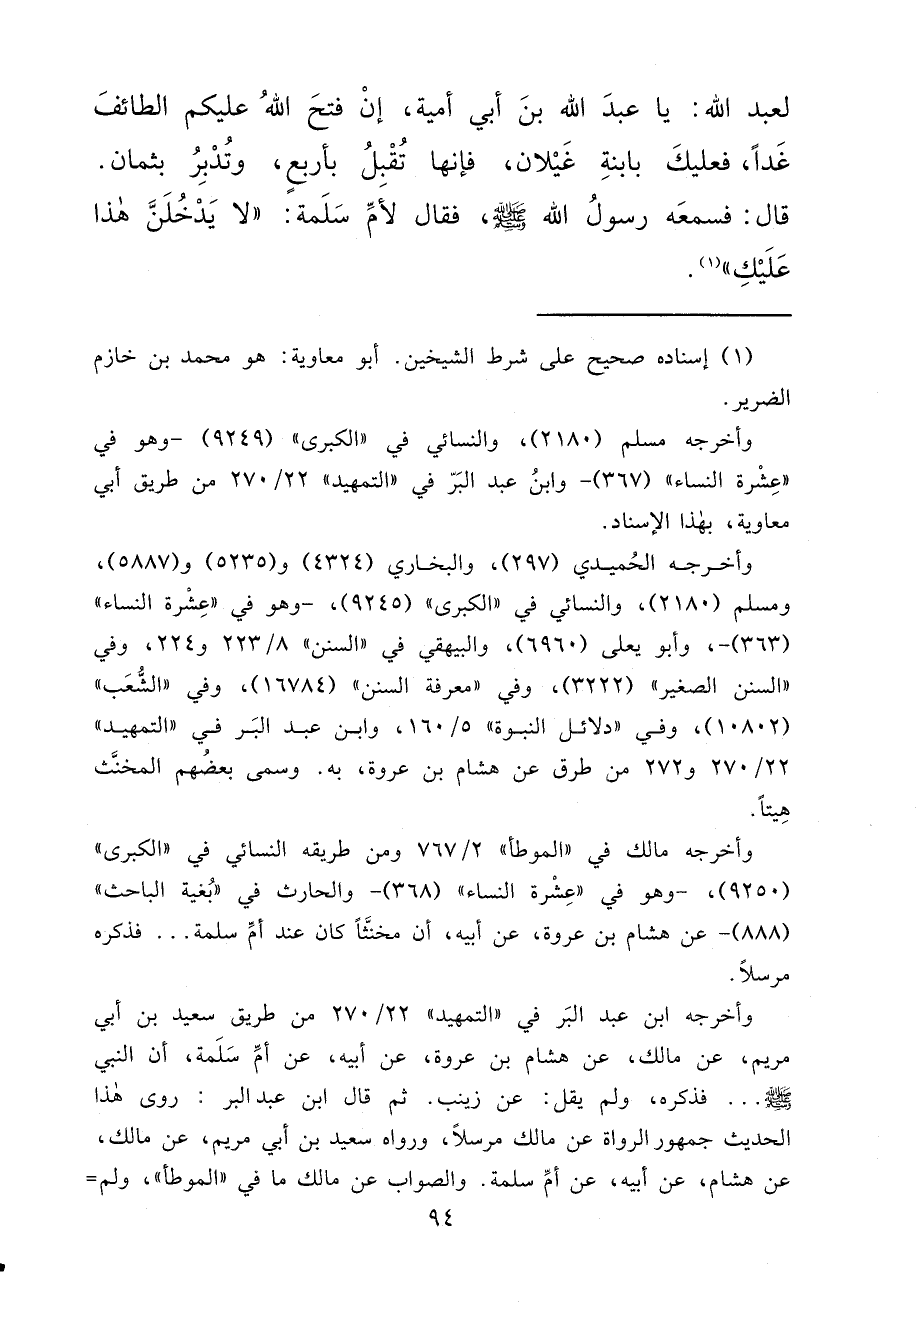 لعبد الله: يا عبدَ الله بنَ أبي أمية، إنْ فتحَ اللهُ عليكم الطائفَ
غَداً، فعليكَ بابنةِ غَيْلان، فإنها تُقْبِلُ بأربعٍ، وتُدْبِرُ بثمان.
قال: فسمعَه رسولُ الله ﷺ، فقال لأمِّ سَلَمة: «لا يَدْخُلَنَّ هٰذا
عَلَيْكِ»(١).
(١) إسناده صحيح على شرط الشيخين. أبو معاوية: هو محمد بن خازم
الضرير.
وأخرجه مسلم (٢١٨٠)، والنسائي في «الكبرى» (٩٢٤٩) -وهو في
«عِشْرة النساء» (٣٦٧)- وابنُ عبد البَرّ في «التمهيد» ٢٧٠/٢٢ من طريق أبي
معاوية، بهٰذا الإسناد.
وأخرجه الحُميدي (٢٩٧)، والبخاري (٤٣٢٤) و(٥٢٣٥) و(٥٨٨٧)،
ومسلم (٢١٨٠)، والنسائي في «الكبرى» (٩٢٤٥)، -وهو في «عِشْرة النساء»
(٣٦٣)-، وأبو يعلى (٦٩٦٠)، والبيهقي في «السنن» ٢٢٣/٨ و٢٢٤، وفي
«السنن الصغير» (٣٢٢٢)، وفي «معرفة السنن» (١٦٧٨٤)، وفي «الشُّعَب»
(١٠٨٠٢)، وفي «دلائل النبوة» ١٦٠/٥، وابن عبد البَر في «التمهيد»
٢٧٠/٢٢ و٢٧٢ من طرق عن هشام بن عروة، به. وسمى بعضُهم المخنَّث
هِيتاً.
وأخرجه مالك في «الموطأ» ٧٦٧/٢ ومن طريقه النسائي في «الكبرى»
(٩٢٥٠)، -وهو في «عِشْرة النساء» (٣٦٨)- والحارث في «بُغية الباحث»
(٨٨٨)- عن هشام بن عروة، عن أبيه، أن مخنَّثاً كان عند أمِّ سلمة... فذكره
مرسلاً.
وأخرجه ابن عبد البَر في «التمهيد» ٢٧٠/٢٢ من طريق سعيد بن أبي
مريم، عن مالك، عن هشام بن عروة، عن أبيه، عن أمِّ سَلَمة، أن النبي
ﷺ... فذكره، ولم يقل: عن زينب. ثم قال ابن عبدالبر : روى هٰذا
الحديث جمهور الرواة عن مالك مرسلاً، ورواه سعيد بن أبي مريم، عن مالك،
عن هشام، عن أبيه، عن أمِّ سلمة. والصواب عن مالك ما في «الموطأ»، ولم=
٩٤